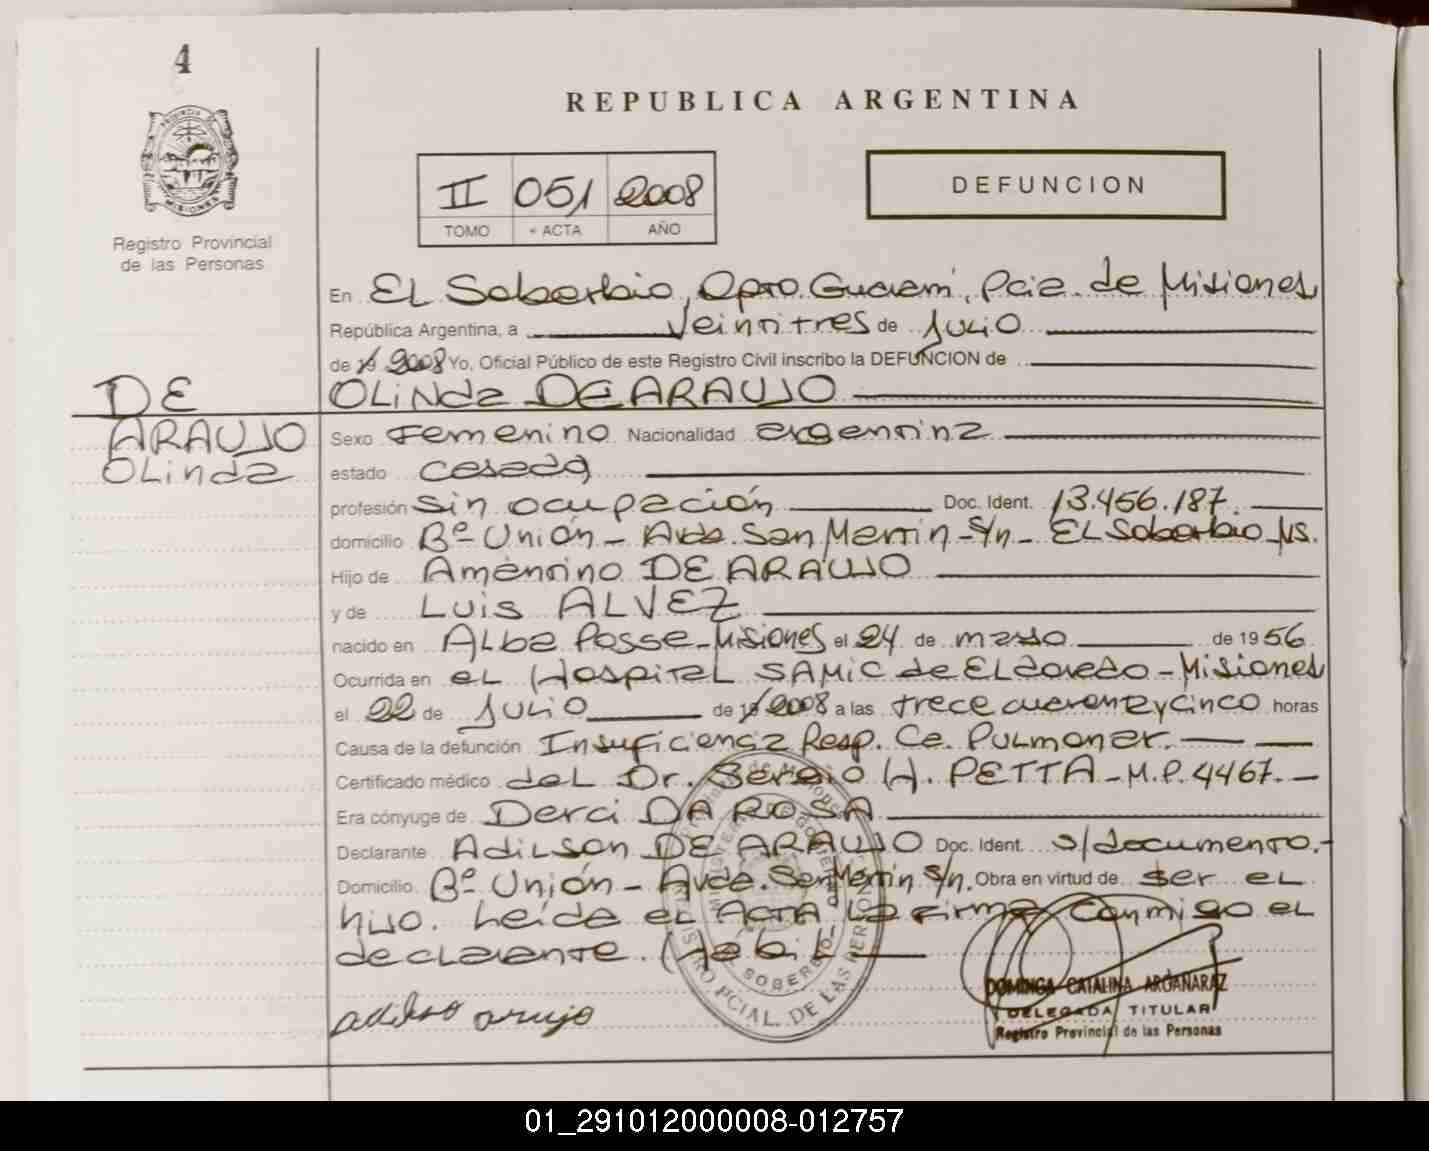 4
REPUBLICA ARGENTINA
II 051 2008
TOMO ACTA AÑO
DEFUNCION
Registro Provincial
de las Personas
En EL Soberbio, Dpto. Guaraní, Pcia. de Misiones
República Argentina, a Veintitres de Julio
de 19 2008 Yo, Oficial Público de este Registro Civil inscribo la DEFUNCION de
DE OLinda DE ARAUJO
ARAUJO Sexo Femenino Nacionalidad argentina
OLinda estado casada
profesión Sin ocupación Doc. Ident. 13.456.187.
domicilio Bº Unión - Avda. San Martin - S/n - EL Soberbio Ms.
Hijo de Amantino DE ARAUJO
y de Luis ALVEZ
nacido en Alba Posse - Misiones el 24 de marzo de 1956
Ocurrida en el Hospital SAMIC de Eldorado - Misiones
el 22 de Julio de 19 2008 a las trece cuarenta y cinco horas
Causa de la defunción Insuficiencia Resp. Ca. Pulmonar.
Certificado médico del Dr. Sergio H. PETTA - M.P. 4467. -
Era cónyuge de Derci DA ROSA
Declarante Adilson DE ARAUJO Doc. Ident. s/documento. -
Domicilio Bº Unión - Avda. San Martin S/n. Obra en virtud de ser el
hijo. Leida el ACTA La firma conmigo el
declarante.
DOMINGA CATALINA ARGAÑARAZ
DELEGADA TITULAR
Registro Provincial de las Personas
01_291012000008-012757